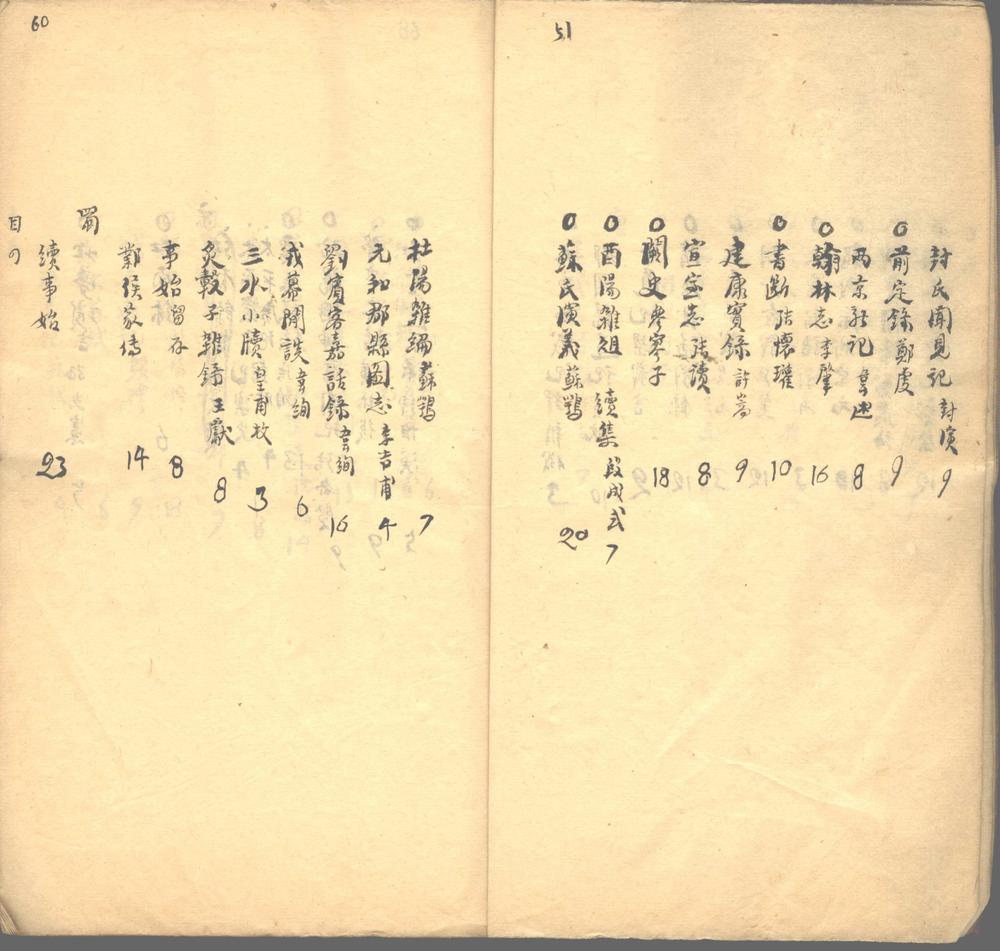 51
封氏聞見記 封演 9
○前定錄 鄭虔 9
兩京新記 韋述 8
○翰林志 李肇 16
○書斷 張懷瓘 10
建康實錄 許嵩 9
宣室志 張讀 8
○闕史 參寥子 18
○酉陽雜俎 續集 段成式 7
○蘇氏演義 蘇鶚 20
60
杜陽雜編 蘇鶚 7
元和郡縣圖志 李吉甫 4
劉賓客嘉話錄 韋絢 16
戎幕閒談 韋絢 6
三水小牘 皇甫枚 3
炙轂子雜錄 王叡 8
事始 留存 8
鄴侯家傳 14
蜀
續事始 23
目の